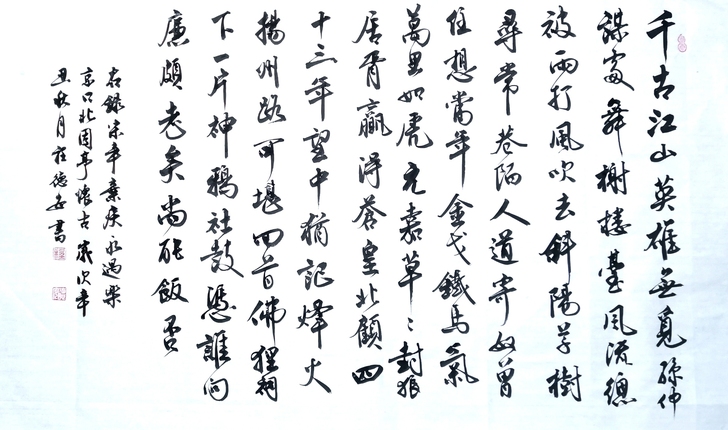 千古江山英雄無覓孫仲
謀處舞榭樓臺風流總
被雨打風吹去斜陽草樹
尋常巷陌人道寄奴曾
住想當年金戈鐵馬氣
萬里如虎元嘉草〻封狼
居胥贏得蒼皇北顧四
十三年望中猶記烽火
揚州路可堪回首佛狸祠
下一片神鴉社鼓憑誰問
廉頗老矣尚能飯否
右錄宋辛棄疾永遇樂
京口北固亭懷古歲次辛
丑秋月德書